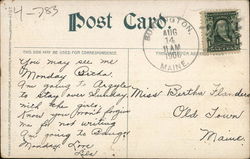 4-783
Post Card.
AUG
14
8 AM
1906
MAINE
THIS SIDE MAY BE USED FOR CORRESPONDENCE
You may see me
Monday
Am going to Argyle
to stay over Sunday
with the girls
Know you won't forgive
me for not writing
Am going to Bangor
Monday Love
Miss Bertha Flanders
Old Town
Maine.